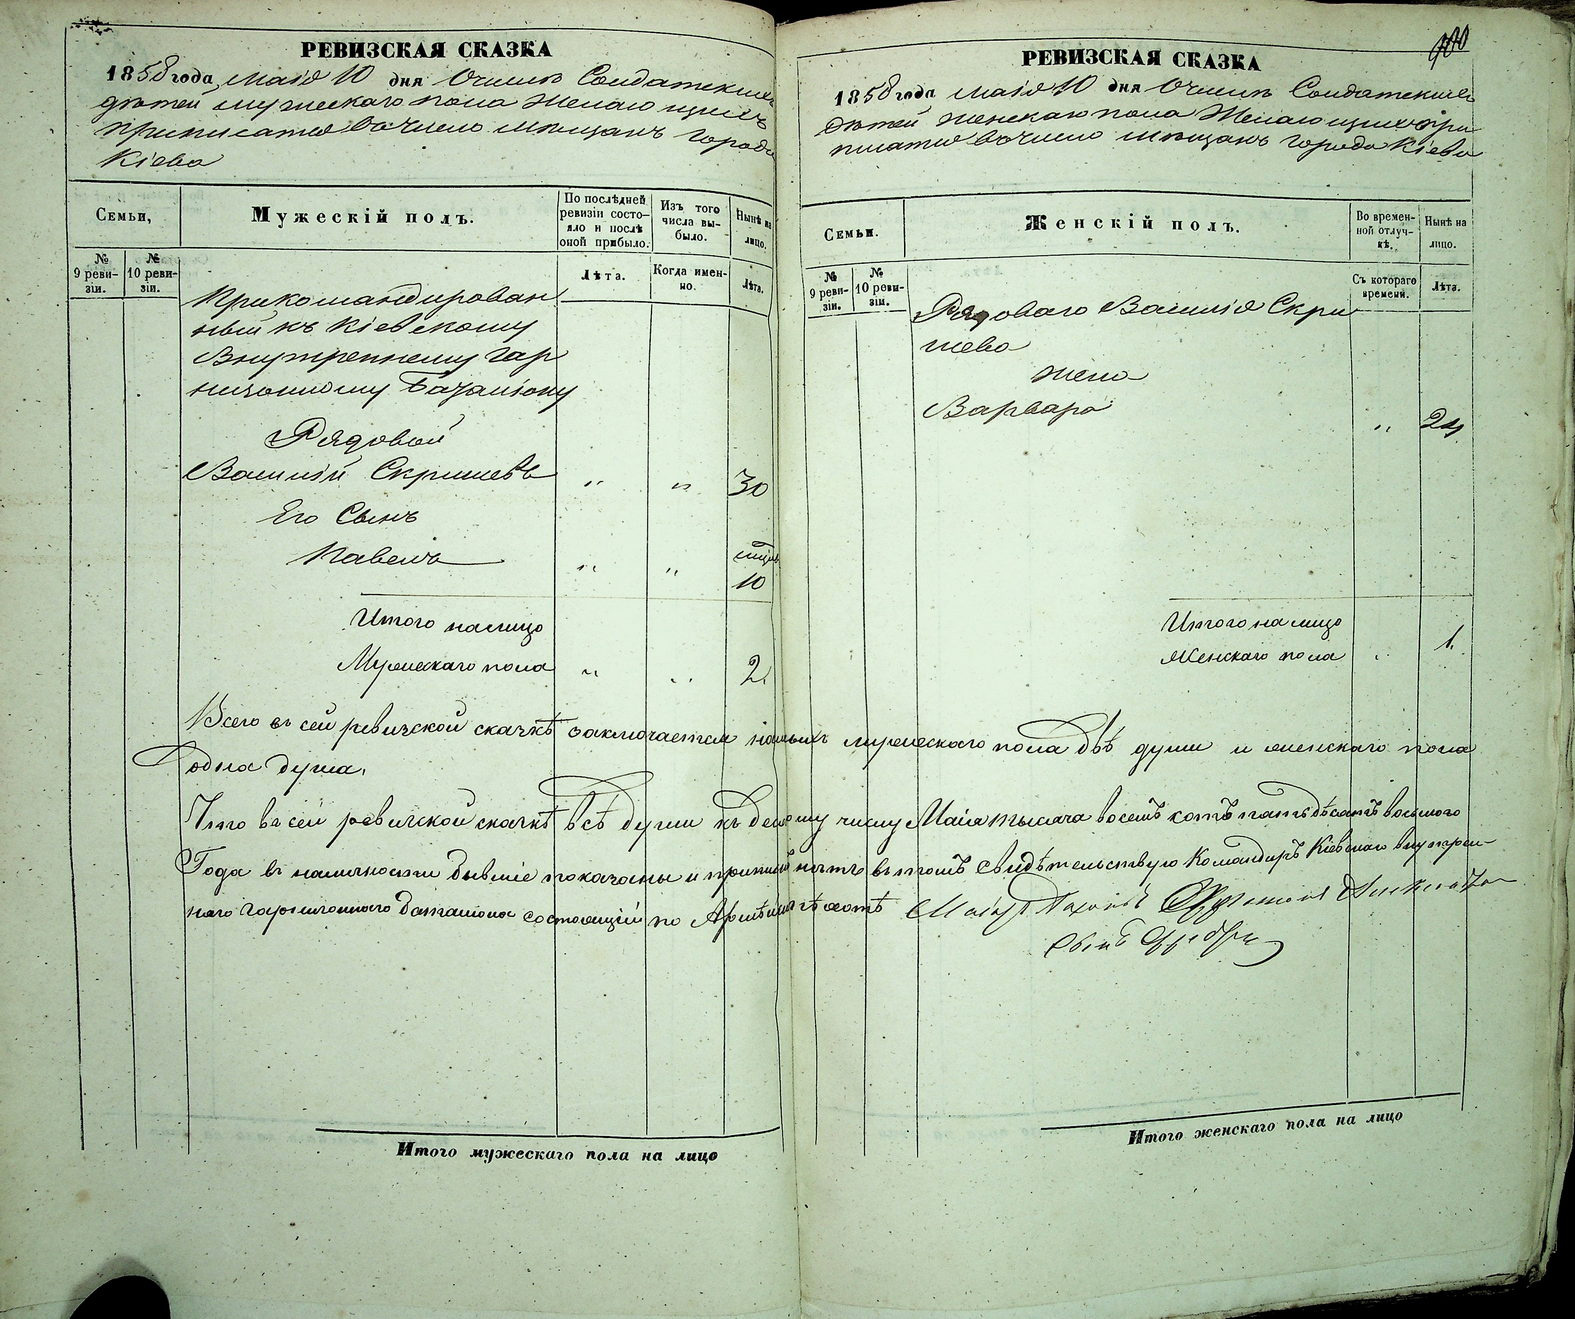 РЕВИЗСКАЯ СКАЗКА
1858 года Маія 10 дня О числѣ Солдатскихъ
дѣтей мужескаго пола желающихъ
приписатся в число мѣщанъ города
Кіева
Семьи,
Мужескій полъ.
По послѣдней
ревизіи состо-
яло и послѣ
оной прибыло.
Изъ того
числа вы-
было.
Нынѣ на
лицо.
№
9 реви-
зіи.
№
10 реви-
зіи.
Лѣта.
Когда имен-
но.
Лѣта.
Прикомандирован
ный къ Кіевскому
Внутреннему гар
низонному Баталіону
Рядовой
Василій Скришевъ " " 30
Его Сынъ
Павелъ " " 10
Итого налицо
Мужескаго пола " " 2
100
РЕВИЗСКАЯ СКАЗКА
1858 года Маія 10 дня О числѣ Солдатскихъ
дѣтей женскаго пола желающихъ при
писатся в число мѣщанъ города Кіева
Семьи.
Женскій полъ.
Во времен-
ной отлуч-
кѣ.
Нынѣ на
лицо.
№
9 реви-
зіи.
№
10 реви-
зіи.
Съ котораго
времени.
Лѣта.
Рядоваго Василія Скри
шева
жена
Варвара " 24
Итого налицо
Женскаго пола " 1.
Всего въ сей ревизской сказкѣ заключается наличныхъ мужескаго пола двѣ души и женскаго пола
одна душа.
Что въ сей ревизской сказкѣ всѣ души къ десятому числу Маія тысяча восемь сотъ пятьдѣсятъ восьмого
Года въ наличности бывшіе показаны и прописныхъ нѣтъ въ томъ свидѣтельствую Командиръ Кіевскаго внутрен-
няго гарнизоннаго баталіона состоящій по Армейской пѣхотѣ Маіоръ
Итого мужескаго пола на лицо
Итого женскаго пола на лицо